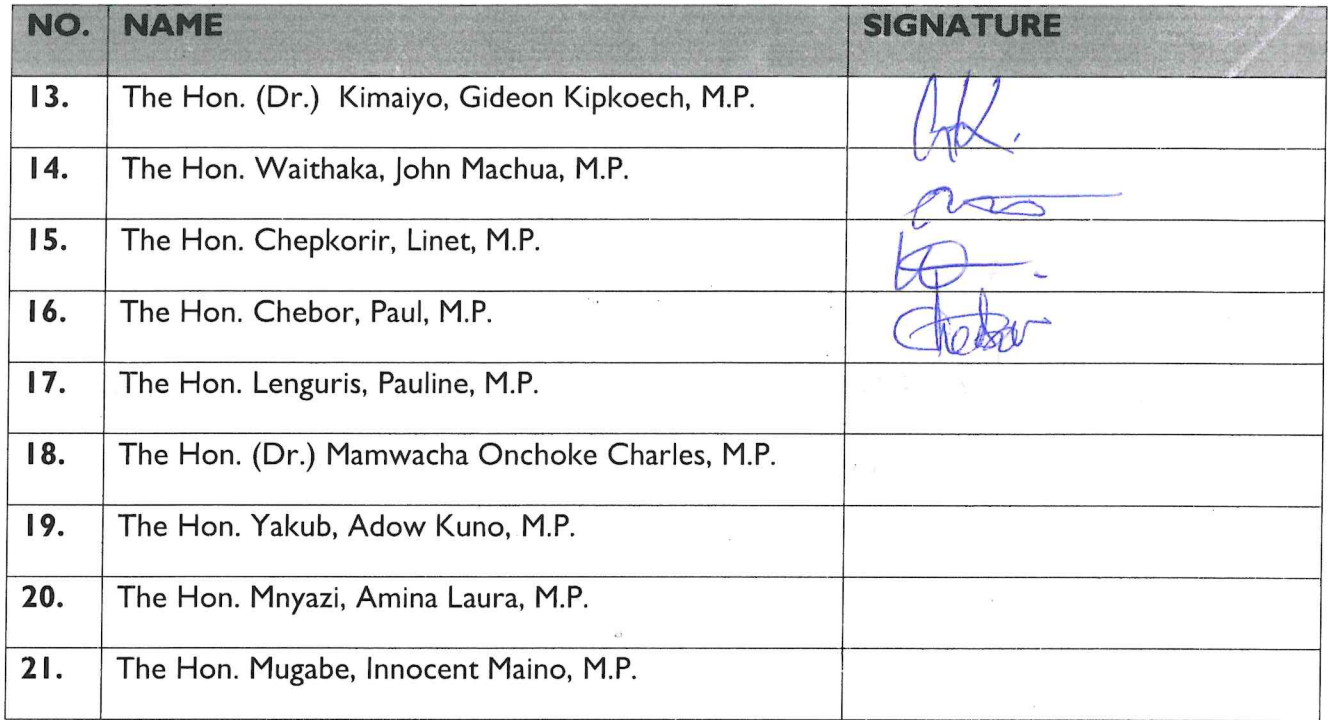 NO. NAME SIGNATURE
13. The Hon. (Dr.) Kimaiyo, Gideon Kipkoech, M.P.
14. The Hon. Waithaka, John Machua, M.P.
15. The Hon. Chepkorir, Linet, M.P.
16. The Hon. Chebor, Paul, M.P. Chebor
17. The Hon. Lenguris, Pauline, M.P.
18. The Hon. (Dr.) Mamwacha Onchoke Charles, M.P.
19. The Hon. Yakub, Adow Kuno, M.P.
20. The Hon. Mnyazi, Amina Laura, M.P.
21. The Hon. Mugabe, Innocent Maino, M.P.